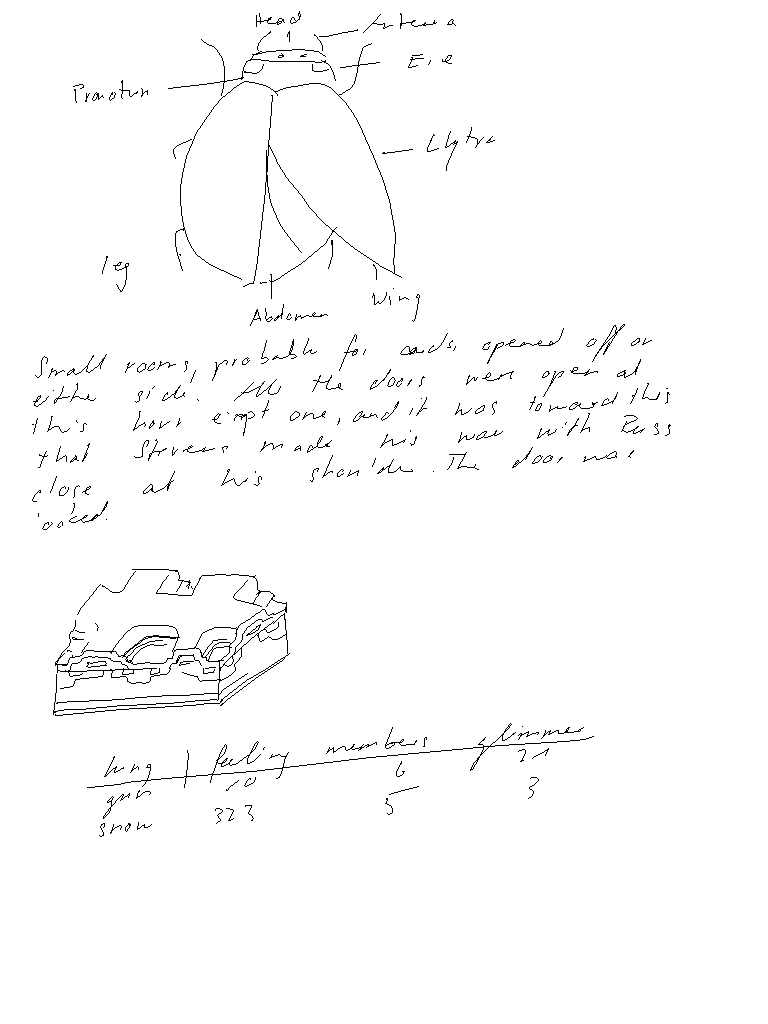 Head
Antenna
Eye
Pronotum
Elytra
leg
Abdomen
Wing
Small rooms, probable for cards, opened off on
either side. All the doors were open at
this hour except one, and it was toward this
that Stevens made his way with Russ
close at his shoulder. The door was
locked.
lung feeling members glimmer
gun 10 6 21
snow 323 5 3